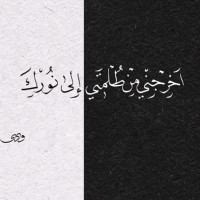 أَخْرِجْنِي مِنْ ظُلْمَتِي إِلَى نُورِكَ